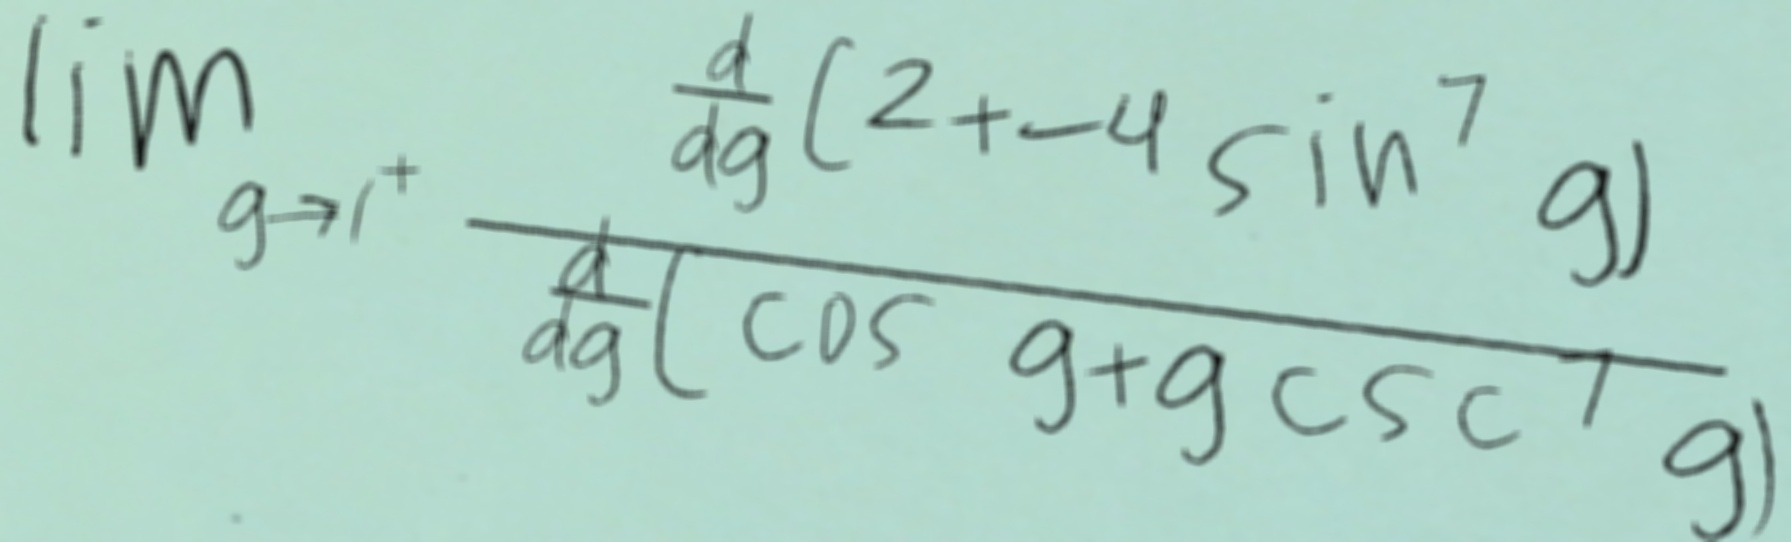 \lim_{g \to 1^+} \frac{\frac{d}{dg}(2+-4 \sin^7 g)}{\frac{d}{dg}(\cos g+g \csc^7 g)}